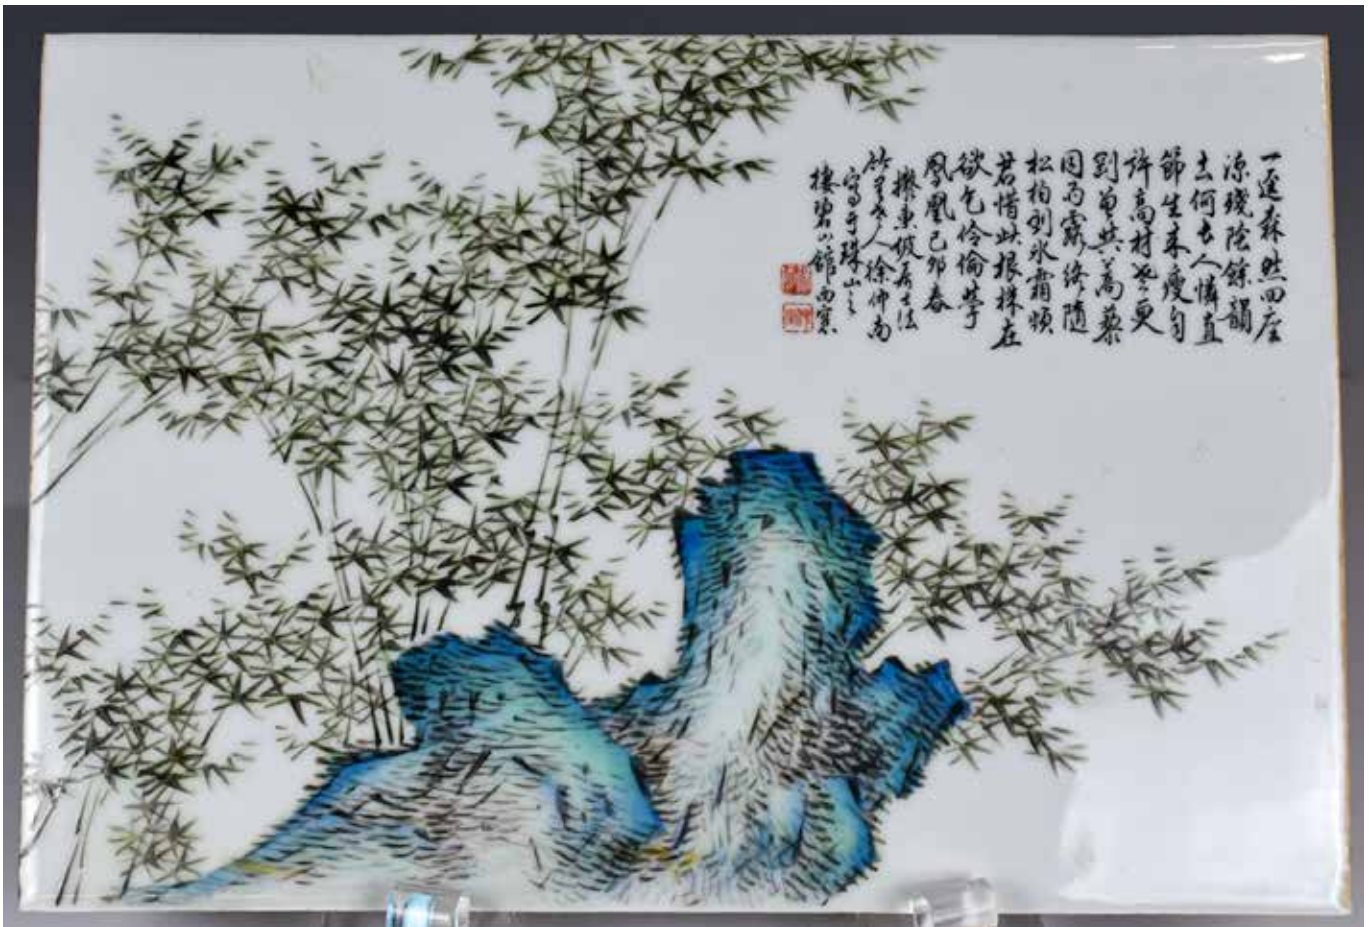 一逕森然四座
凉殘陰餘韻
去何長人憐直
節生來瘦自
許高材老更
剛曾共蒿藜
同雨露終隨
松柏到冰霜煩
君惜此根株在
欲乞伶倫學
鳳凰己卯春
東坡居士法
竹里老人徐仲南
寫于珠山之
棲碧山館西窗